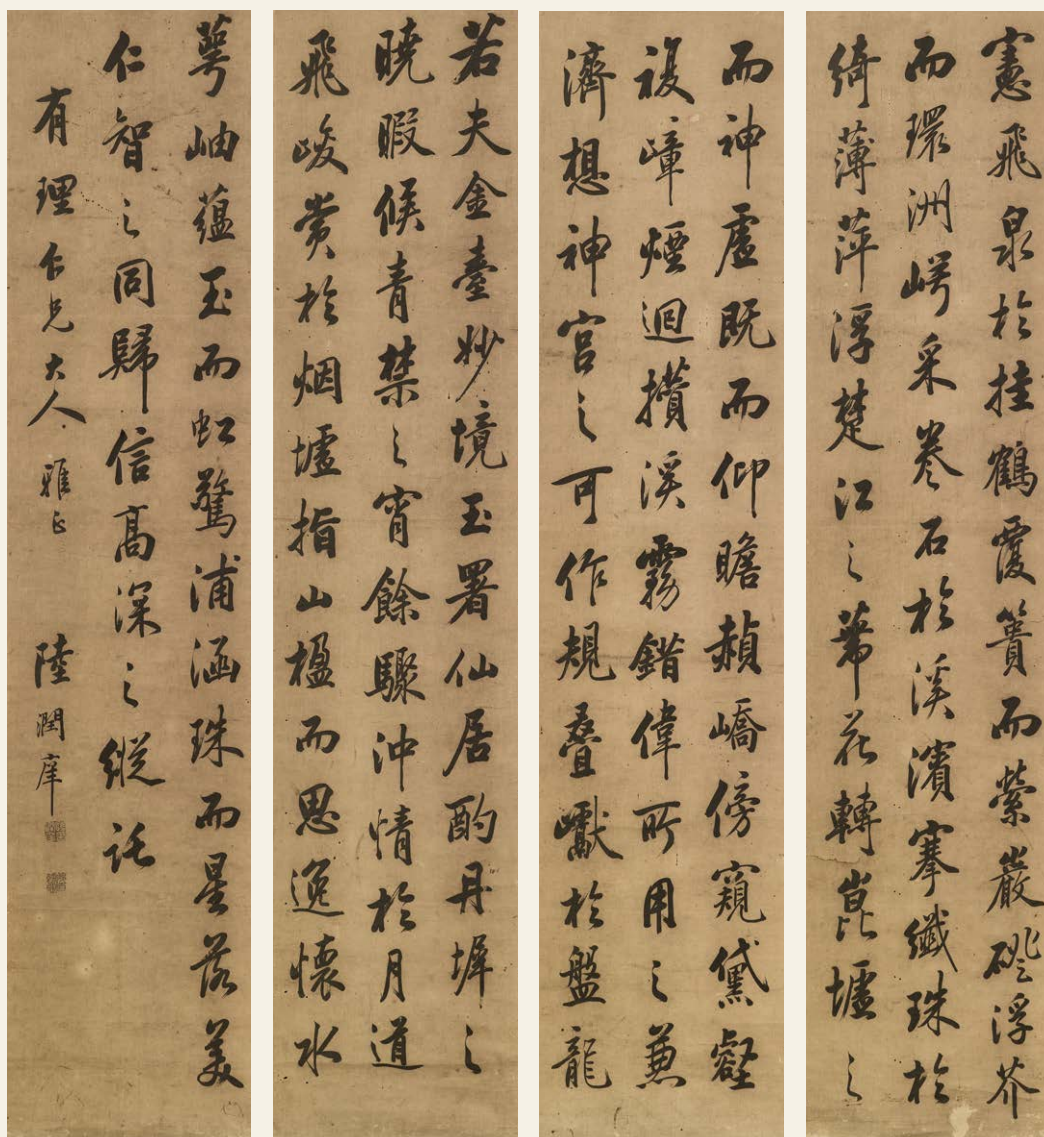 憲飛泉於挂鶴覆簣而縈巖磴浮芥
而環洲崿采卷石於溪濱搴纖珠於
綺薄萍浮楚江之蒂花轉崑墟之
而神虛既而仰瞻赬嶠傍窺黛壑
複嶂煙迴攢溪霧錯偉所用之兼
濟想神宮之可作規疊巘於盤龍
若夫金臺妙境玉署仙居酌丹墀之
曉暇候青禁之宵餘驟沖情於月道
飛峻賞於烟墟指山楹而思逸懷水
萼岫蘊玉而虹驚浦涵珠而星落美
仁智之同歸信高深之縱託
有理仁兄大人雅正 陸潤庠